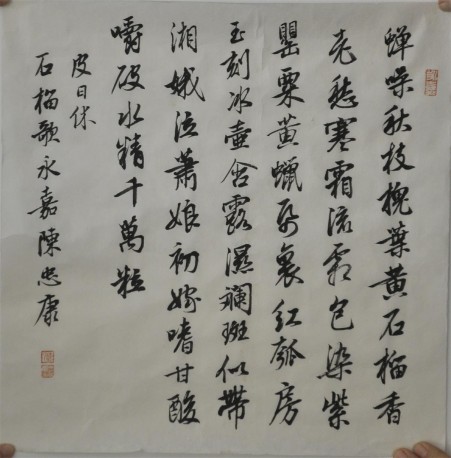 蟬噪秋枝槐葉黃石榴香
老愁寒霜流霞包染紫
罌粟黃蠟紙裹紅瓠房
玉刻冰壺含露濕斕斑似帶
湘娥泣蕭娘初嫁嗜甘酸
嚼破水精千萬粒
皮日休
石榴歌永嘉陳忠康